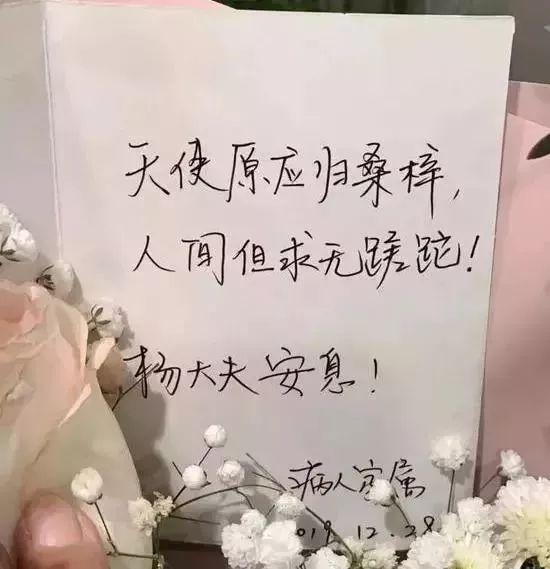 天使原应归桑梓,
人间但求无蹉跎!
杨大夫安息!
病人家属
019.12.28